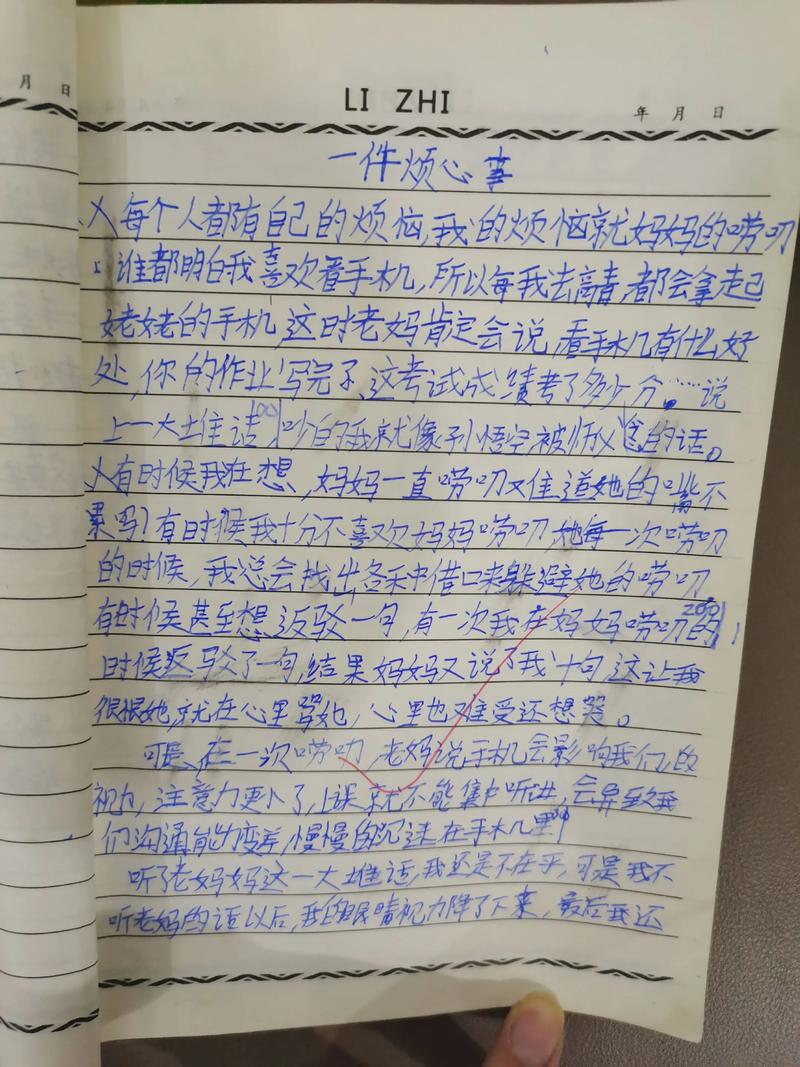 月 日
LI ZHI
年 月 日
一件烦心事
每个人都有自己的烦恼,我的烦恼就妈妈的唠叨
谁都明白我喜欢看手机,所以每我去离青,都会拿走己
姥姥的手机,这时老妈肯定会说,看手机有什么好
处,你的作业写完了,这考试成绩考了多少分。……说
上一大堆话,吵的我就像孙悟空被师父念的话。
有时候我在想,妈妈一直唠叨难道她的嘴不
累吗?有时候我十分不喜欢妈妈唠叨,她每一次唠叨
的时候,我总会找出各种借口来躲避她的唠叨
有时候甚至想返驳一句,有一次我在妈妈唠叨的
时候返驳了一句,结果妈妈又说了我十句,这让我
很恨她,就在心里骂她,心里也难受还想哭。
可是、在一次唠叨,老妈说手机会影响我们的
视力,注意力更人了,上课就不能集中听讲,会导致我
们沟通能力变差,慢慢的沉迷在手机里
听了老妈妈这一大堆话,我还是不在乎,可是我不
听老妈的话以后,我的眼睛视力降了下来,最后我还
100
200
300